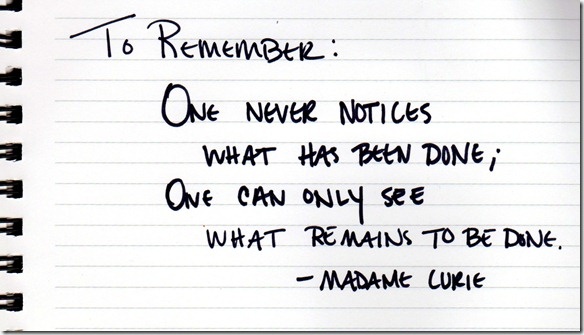 To Remember:
One never notices
what has been done;
One can only see
what remains to be done.
- Madame Curie